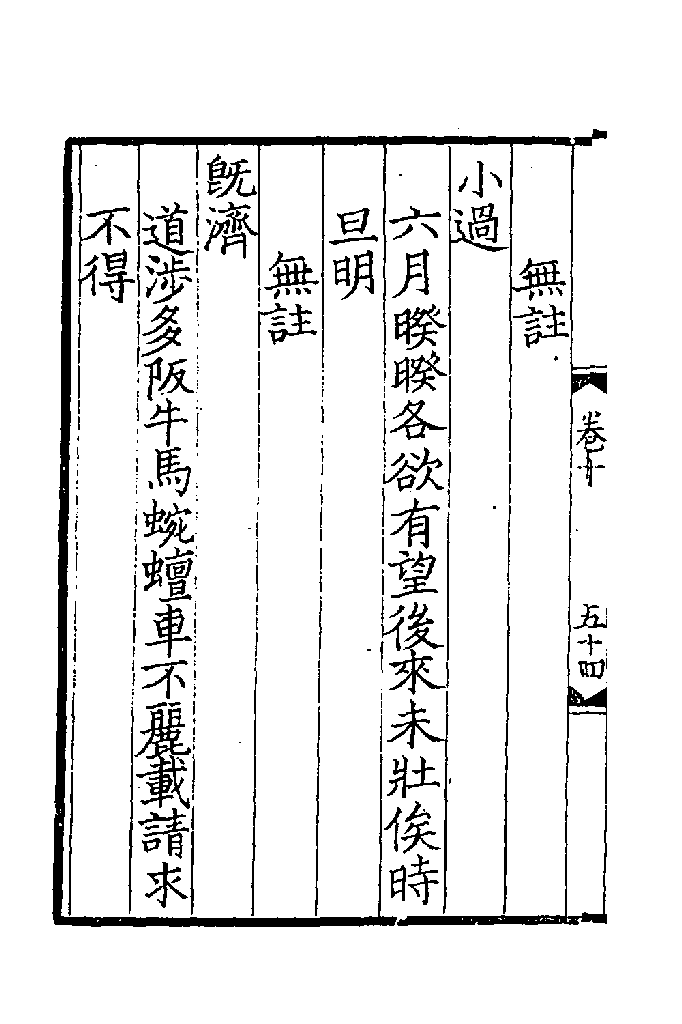 無註
小過
六月睽睽各欲有望後來未壯俟時
旦明
無註
既濟
道涉多阪牛馬蜿蟺車不麗載請求
不得
卷十
五十四